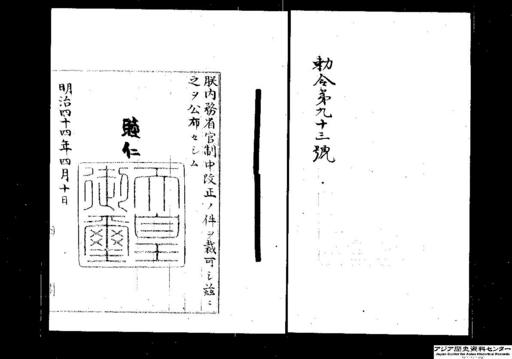 勅令第九十三號
朕内務省官制中改正ノ件ヲ裁可シ茲ニ
之ヲ公布セシム
睦仁
天皇
御璽
明治四十四年四月十日
アジア歴史資料センター
Japan Center for Asian Historical Records